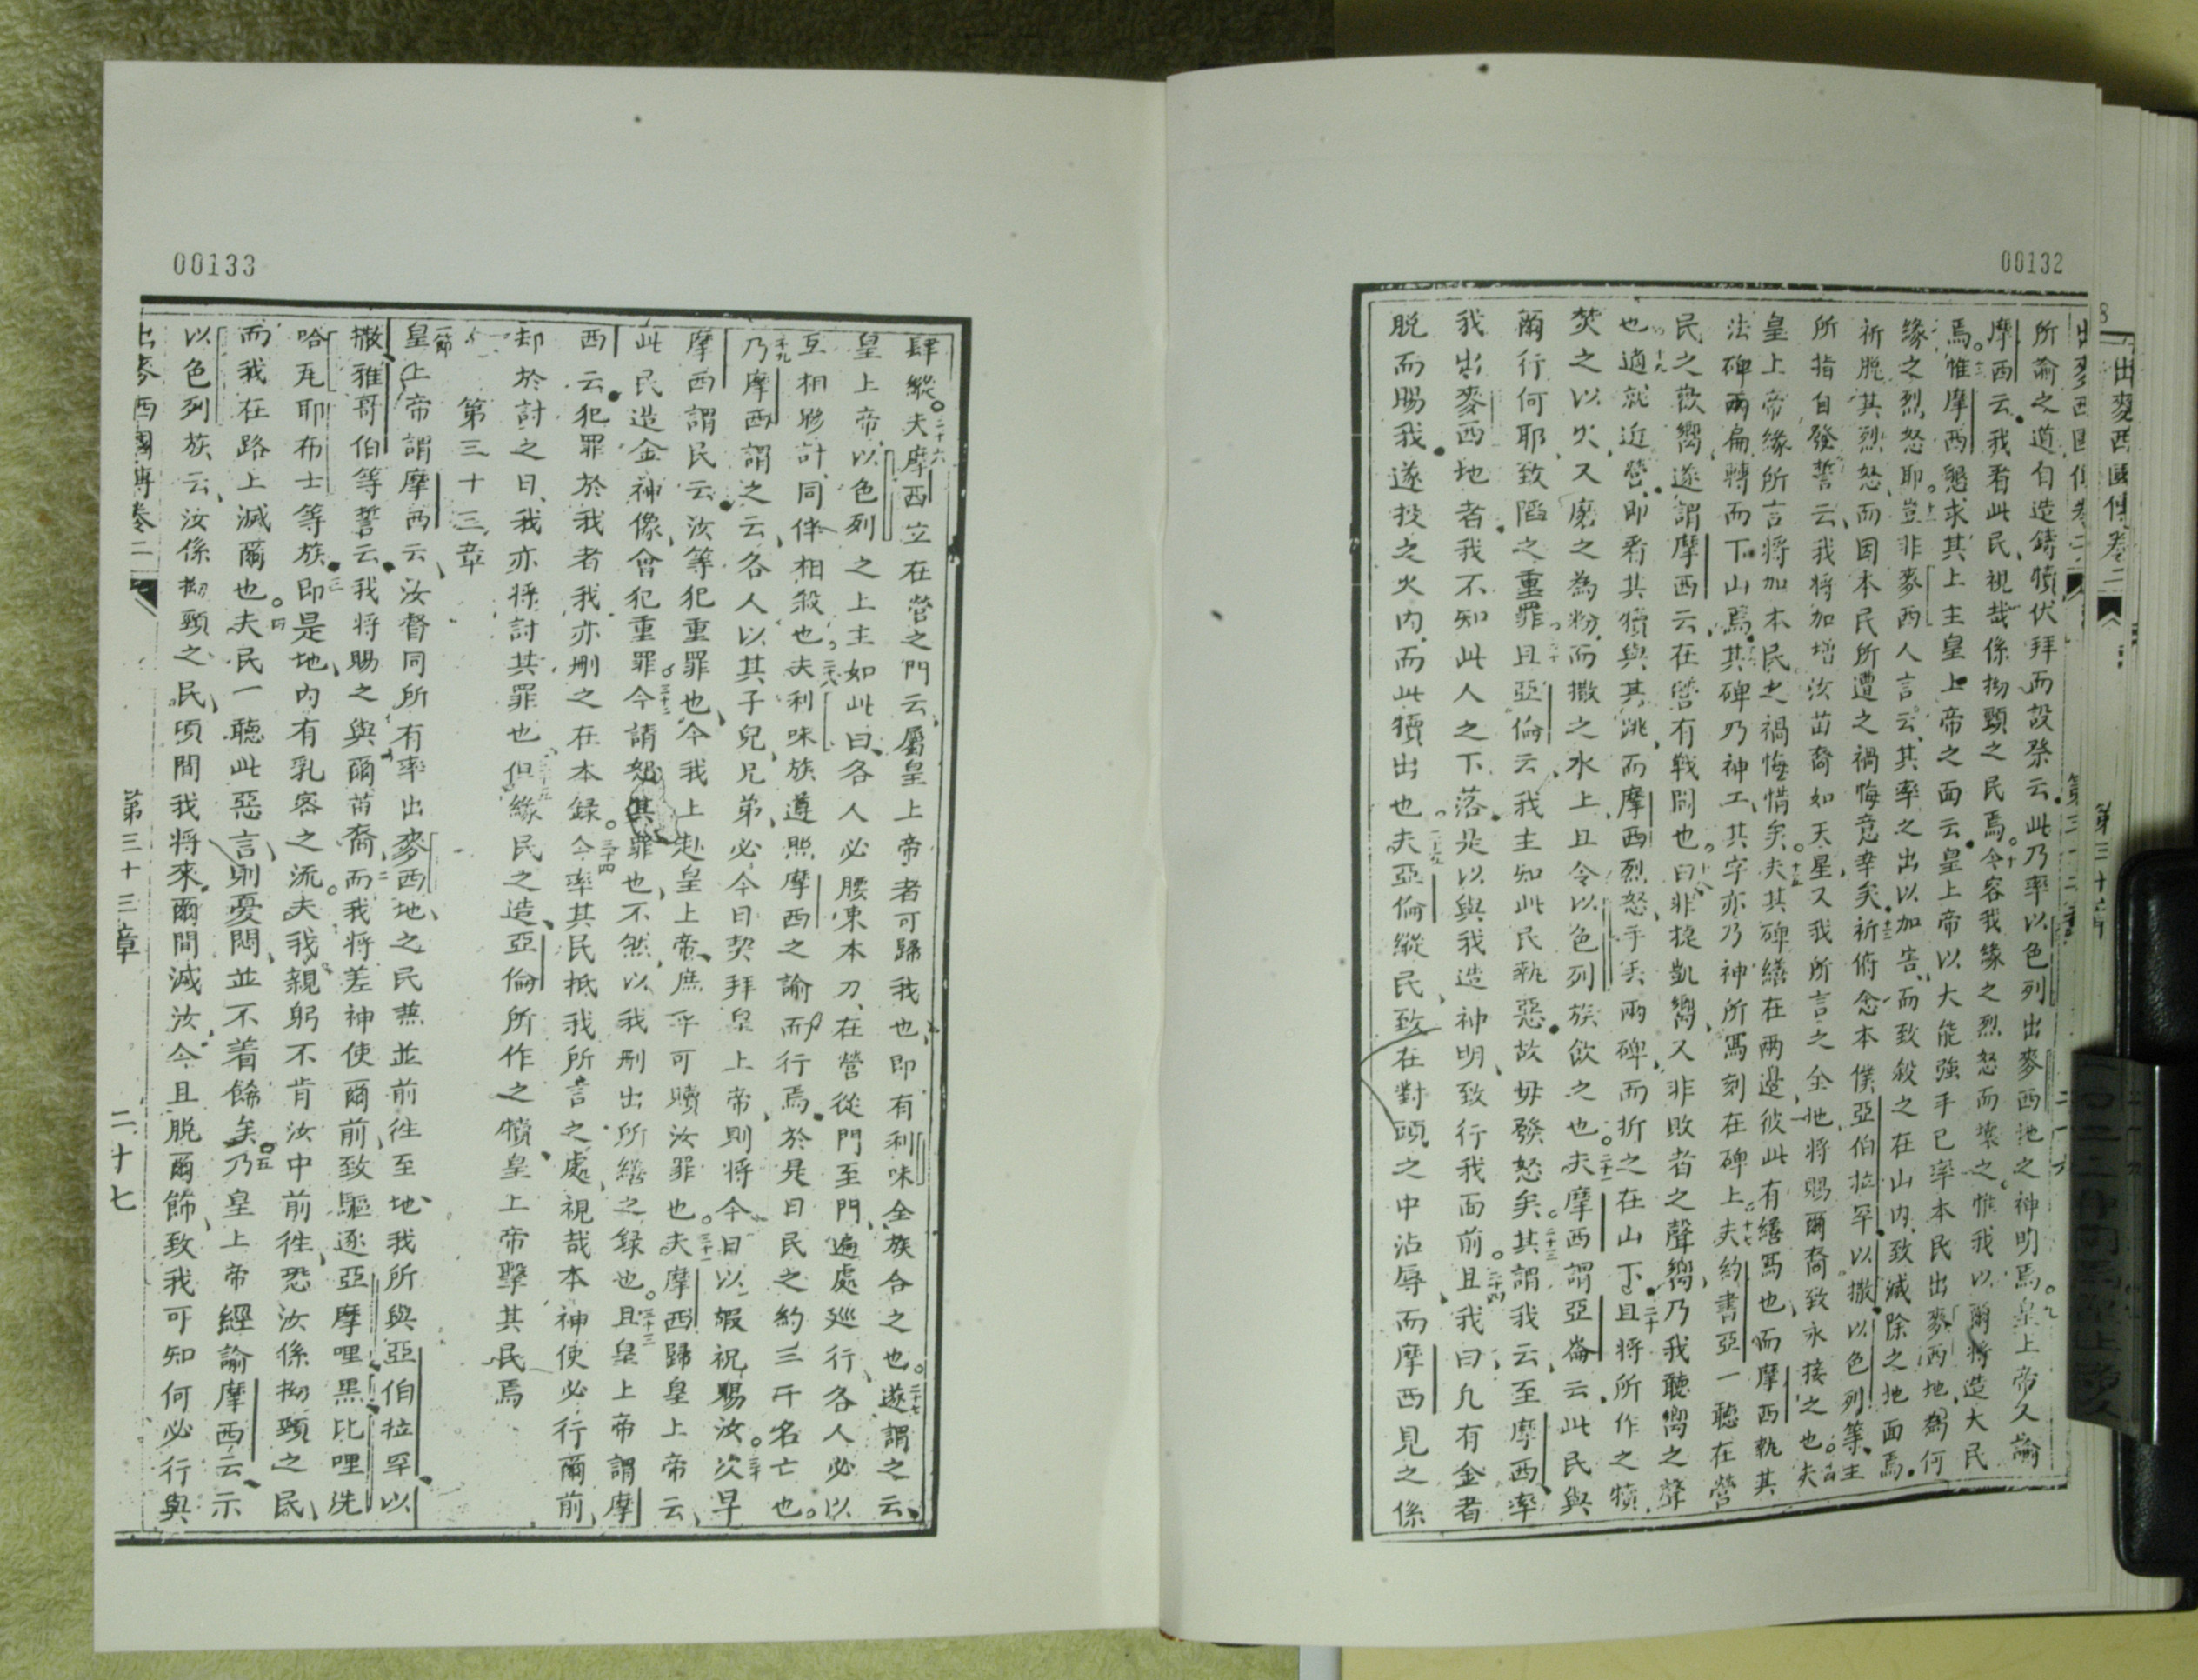 00132
所諭之道自造鑄犢伏拜而設祭云此乃率以色列出麥西地之神明焉九皇上帝又諭
摩西云我看此民視哉係拗頸之民焉十今容我緣之烈怒而壞之惟我以爾將造大民
焉惟摩西懇求其上主皇上帝之面云皇上帝以大能強手已率本民出麥西地為何
緣之烈怒耶豈非麥西人言云其率之出以加害而致殺之在山內致滅除之地面焉
祈脫其烈怒而因本民所遭之禍悔意幸矣十三祈俯念本僕亞伯拉罕以撒以色列等主
所指自發誓云我將加增汝苗裔如天星又我所言之全地將賜爾裔致永接之也夫
皇上帝緣所言將加本民之禍悔惜矣十五夫其碑繕在兩邊彼此有繕寫也而摩西執其
法碑兩扁轉而下山焉其碑乃神工其字亦乃神所寫刻在碑上十七夫約書亞一聽在營
民之歡嚮遂謂摩西云在營有戰鬥也十八曰非提凱嚮又非敗者之聲嚮乃我聽嚮之聲
也十九適就近營即看其犢與其跳而摩西烈怒手丟兩碑而折之在山下二十且將所作之犢
焚之以火又磨之為粉而撒之水上且令以色列族飲之也二十一夫摩西謂亞崙云此民與
爾行何耶致陷之重罪二十二且亞倫云我主知此民執惡故毋發怒矣二十三其謂我云至摩西率
我出麥西地者我不知此人之下落是以與我造神明致行我面前二十四且我曰凡有金者
脫而賜我遂投之火內而此犢出也二十五夫亞倫縱民致在對頭之中沾辱而摩西見之係
00133
肆縱二十六夫摩西立在營之門云屬皇上帝者可歸我也即有利味全族合之也二十七遂謂之云
皇上帝以色列之上主如此曰各人必腰束本刀在營從門至門遍處廵行各人必以
互相夥計同伴相殺也二十八夫利味族遵照摩西之諭而行焉於是日民之約三千名亡也
二十九乃摩西謂之云各人以其子兒兄弟必今日契拜皇上帝則將今日以嘏祝賜汝三十次早
摩西謂民云汝等犯重罪也今我上赴皇上帝庶乎可贖汝罪也三十一夫摩西歸皇上帝云
此民造金神像曾犯重罪三十二今請恕其罪也不然以我刪出所繕之録也三十三且皇上帝謂摩
西云犯罪於我者我亦刪之在本録三十四今率其民抵我所言之處視哉本神使必行爾前
却於討之日我亦將討其罪也三十五但緣民之造亞倫所作之犢皇上帝擊其民焉
第三十三章
一節皇上帝謂摩西云汝督同所有率出麥西地之民兼並前徃至地我所與亞伯拉罕以
撒雅哥伯等誓云我將賜之與爾苗裔二而我將差神使爾前致驅逐亞摩哩黑比哩洗
哈瓦耶布士等族三即是地內有乳密之流夫我親躬不肯汝中前徃恐汝係拗頸之民
而我在路上滅爾也四夫民一聽此惡言則憂悶並不着餙矣五乃皇上帝經諭摩西云示
以色列族云汝係拗頸之民頃間我將來爾間滅汝今且脫爾餙致我可知何必行與
出麥西國傳卷二 第三十三章 二十七